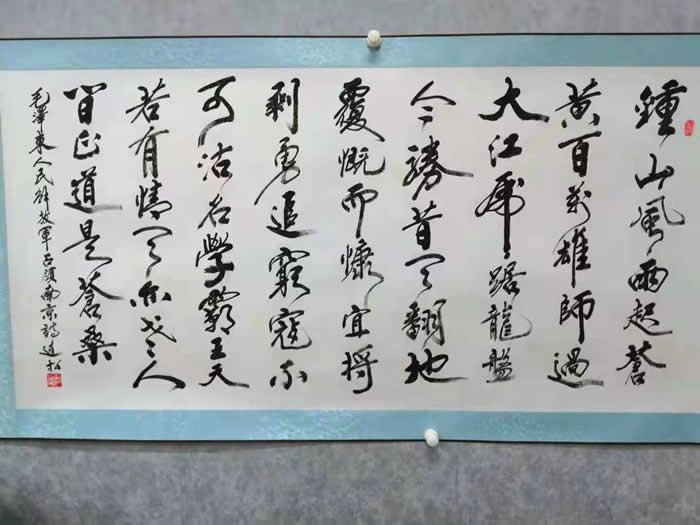 鍾山風雨起蒼
黃百萬雄師過
大江虎踞龍盤
今勝昔天翻地
覆慨而慷宜將
剩勇追窮寇不
可沽名學霸王天
若有情天亦老人
间正道是蒼桑
毛澤東人民解放軍占領南京詩